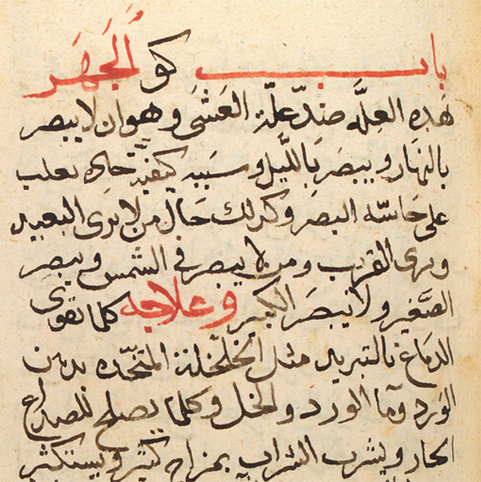 باب كو الجَهَر
هذه العلّه ضدّ علّة العَشَى وهو ان لا يبصر
بالنهار ويبصر بالليل وسببه كيفيّة حاده تغلب
على حاسّه البصر وكذلك حال من لا يرى البعيد
ويرى القريب ومن لا يبصر في الشمس ويبصر
الصَّغير ولا يبصر الكبير وعلاجه كلما يقوى
الدماغ بالتبريد مثل الخلخلة المتخّذه بدهن
الورد وما الورد والخل وكلما يصلح للصداع
الحار ويشرب الشراب بمزاج كثير ويستكثر